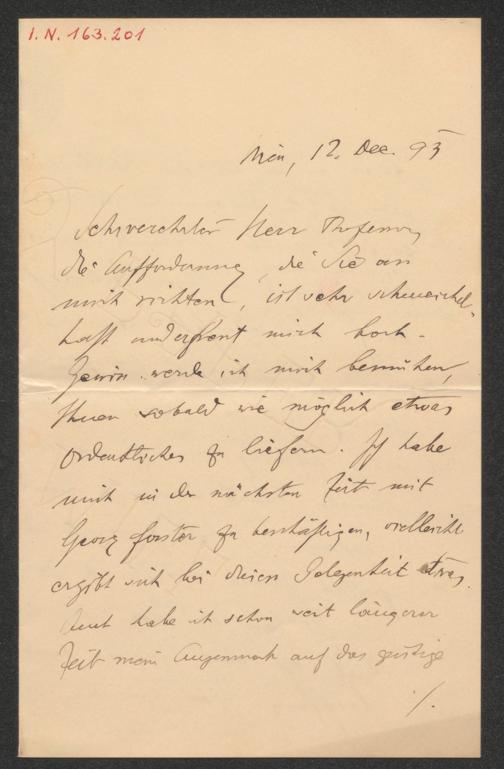 I. N. 163.201
Wien, 12. Dec. 95
Sehrverehrter Herr Professor,
die Aufforderung, die Sie an
mich richten, ist sehr schmeichel-
haft und erfreut mich hoch.
Gewiss werde ich mich bemühen,
Ihnen sobald wie möglich etwas
Ordentliches zu liefern. Ich habe
mich in der nächsten Zeit mit
Georg Forster zu beschäftigen, vielleicht
ergibt sich bei dieser Gelegenheit etwas.
Auch habe ich schon seit längerer
Zeit mein Augenmerk auf das geistige
./.